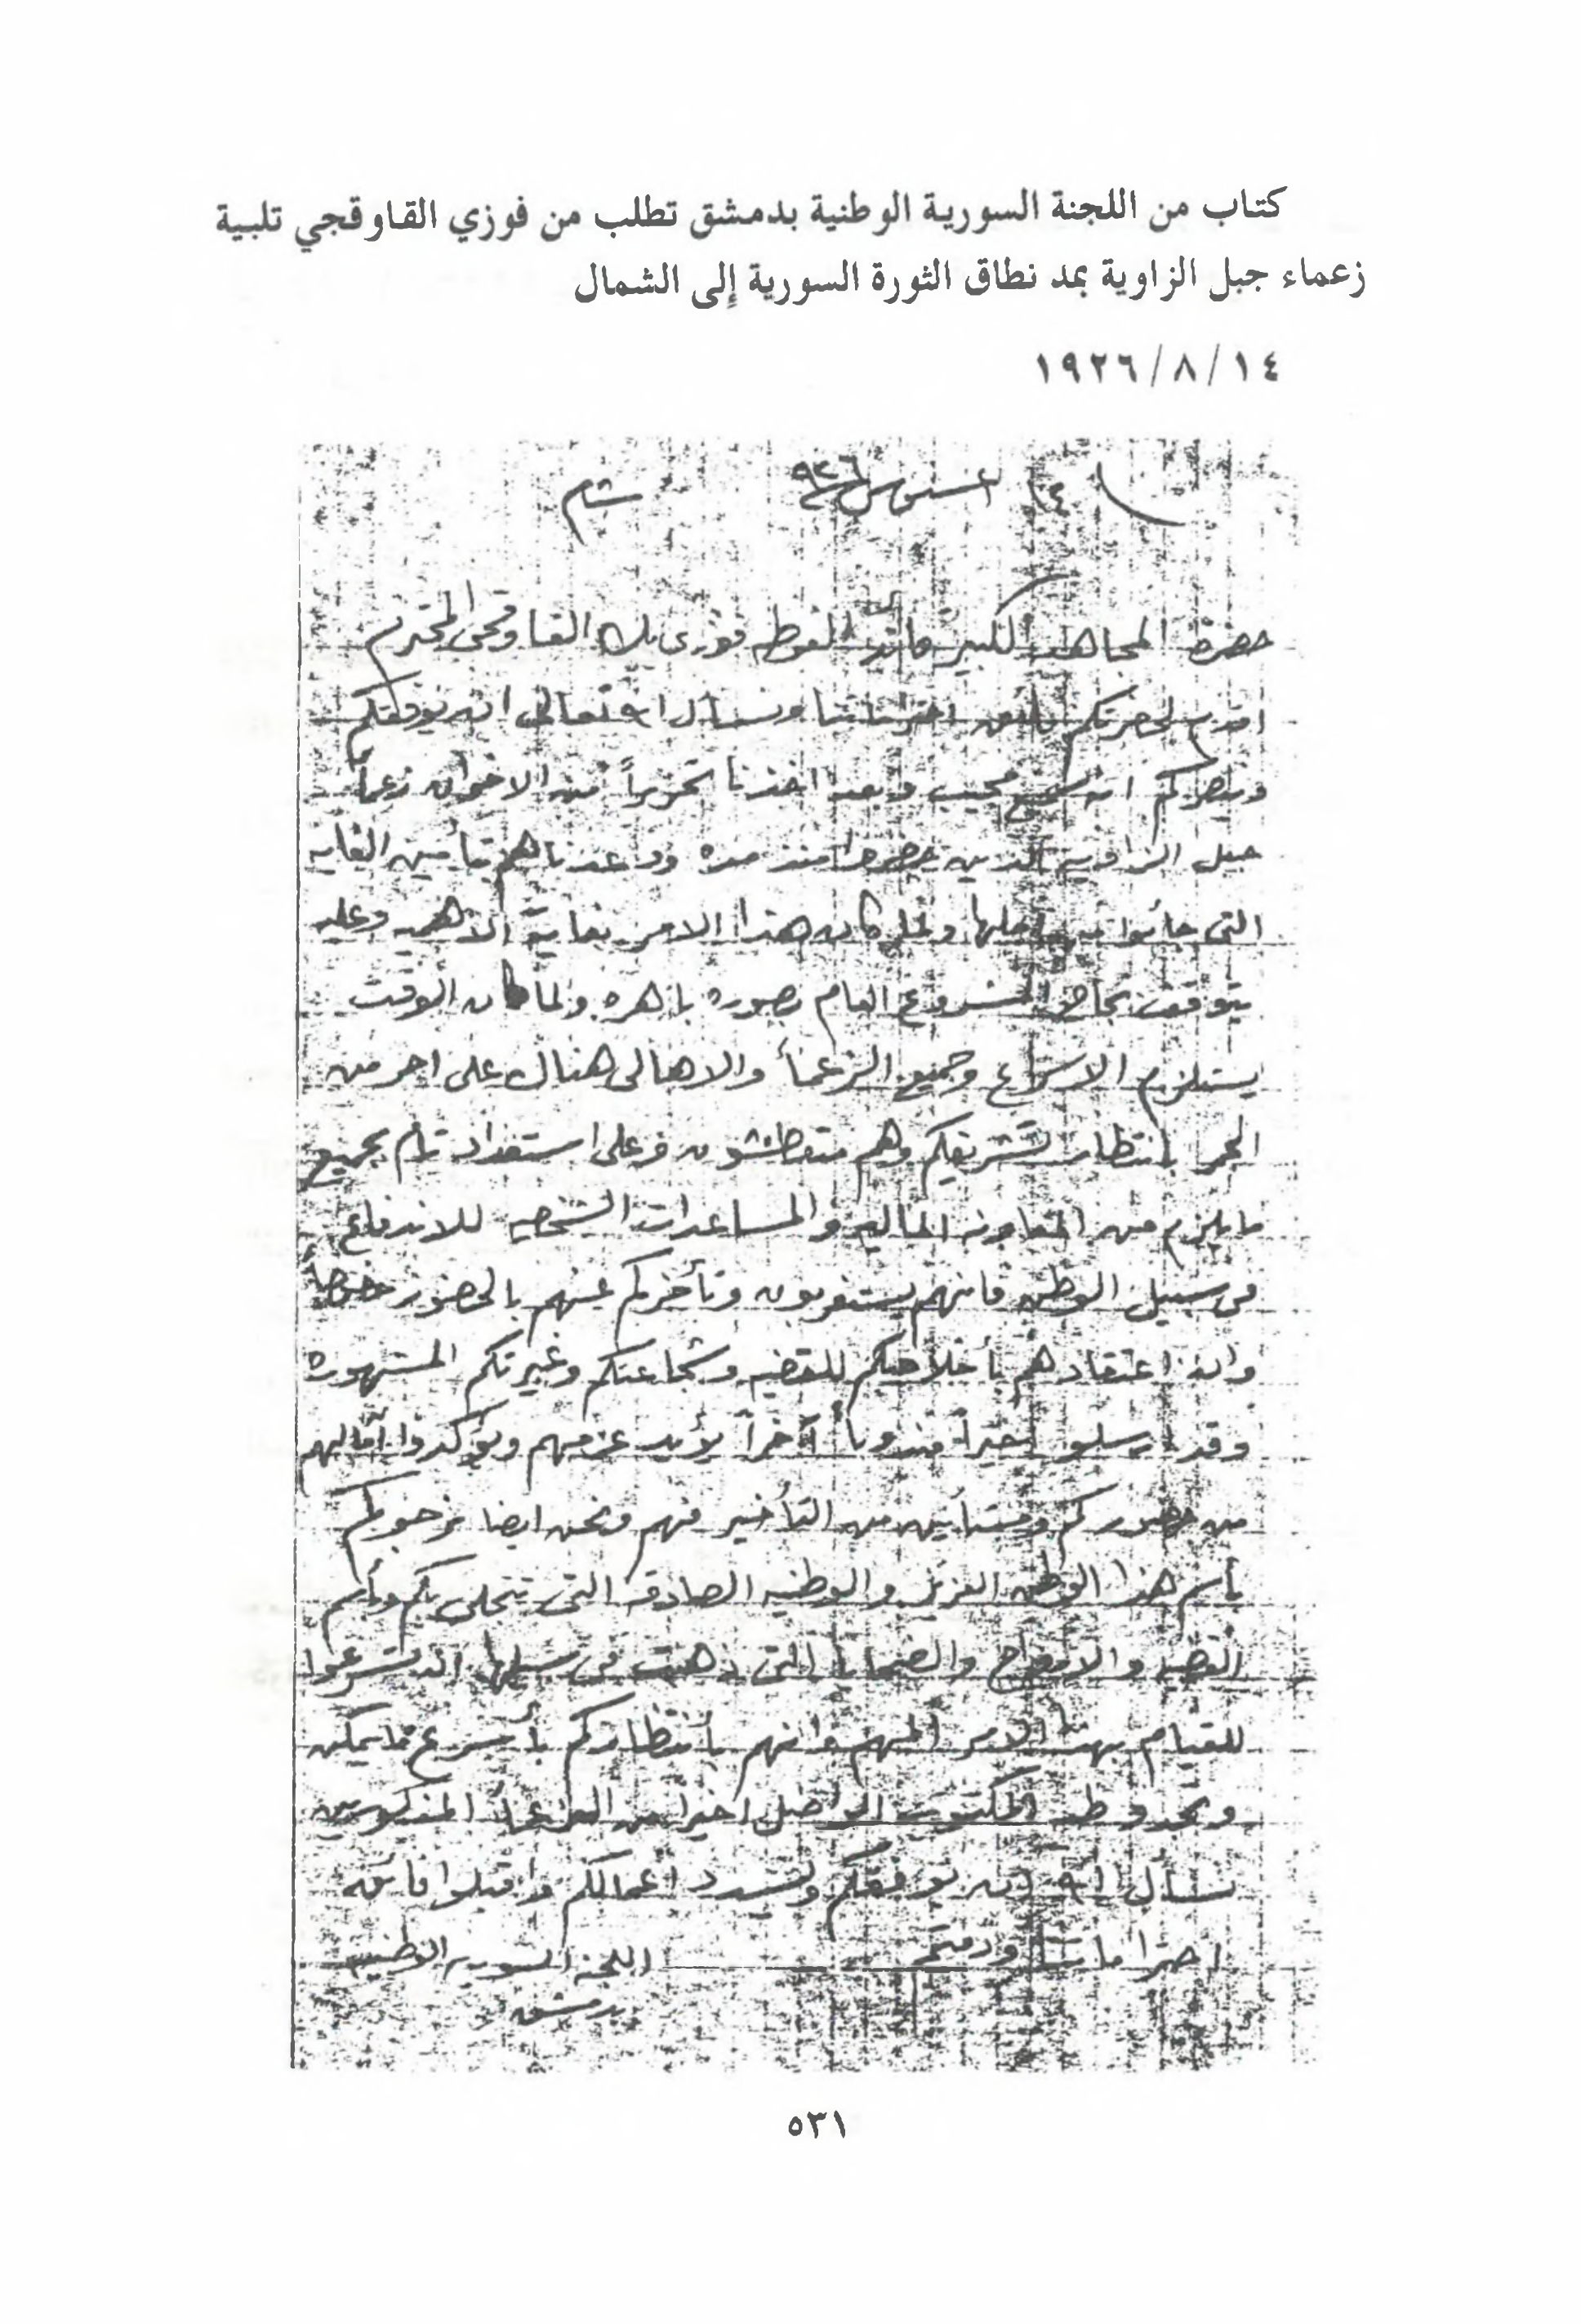 كتاب من اللجنة السورية الوطنية بدمشق تطلب من فوزي القاوقجي تلبية
زعماء جبل الزاوية بمد نطاق الثورة السورية إلى الشمال
١٩٢٦/٨/١٤
١٤ اغسطوس ٩٢٦ شام
حضرة المجاهد الكبير قائد الغوطه فوزي بك القاوقجي المحترم
اقدم لحضرتكم فائق احتراماتنا ونسأل الله تعالى ان يوفقكم
وينصركم انه سميع مجيب وبعد اخذنا تحريراً من الاخوان زعمأ
جبل الزاويه الذين حضروا منذ مده ووعدناهم بتأمين الغايه
التي جائوا من اجلها ولما كان هذا الامر بغاية الاهميه وعليه
يتوقف نجاح المشروع العام بصوره باهره ولما كان الوقت
يستلزم الاسراع وجميع الزعمأ والاهالى هنالك على احر من
الجمر بانتظار تشريفكم وهم متعطشون وعلى استعداد تام بجميع
ما يلزم من المعاونه الماليه والمساعدات الشخصيه للاندفاع
في سبيل الوطن فانهم يستغربون تأخركم عنهم بالحضور خصوصاً
وان اعتقادهم بأخلاصكم للقضيه وشجاعتكم وغيرتكم المشهوره
وقد ارسلو اخيراً مندوباً آخراً يؤيد عزمهم ويؤكدوا آمالهم
من حضوركم من التأخير ونحن ايضا نرجوكم
بأسم هذا الوطن العزيز والوطنيه الصادقه التي تتحلى بكم وبأسم
القضيه والارواح والضحايا التي ذهبت في سبيلها ان تسرعوا
للقيام بهذا الامر المهم وانهم بأنتظاركم بأسرع ما يمكن
وتجدو طيه المكتوب الواصل اخيراً من الزعمأ المذكورين
نسأل الله ان يوفقكم ويسدد اعمالكم واقبلوا فائق
احتراماتنا ودمتم اللجنه السوريه الوطنيه
بدمشق
٥٣١